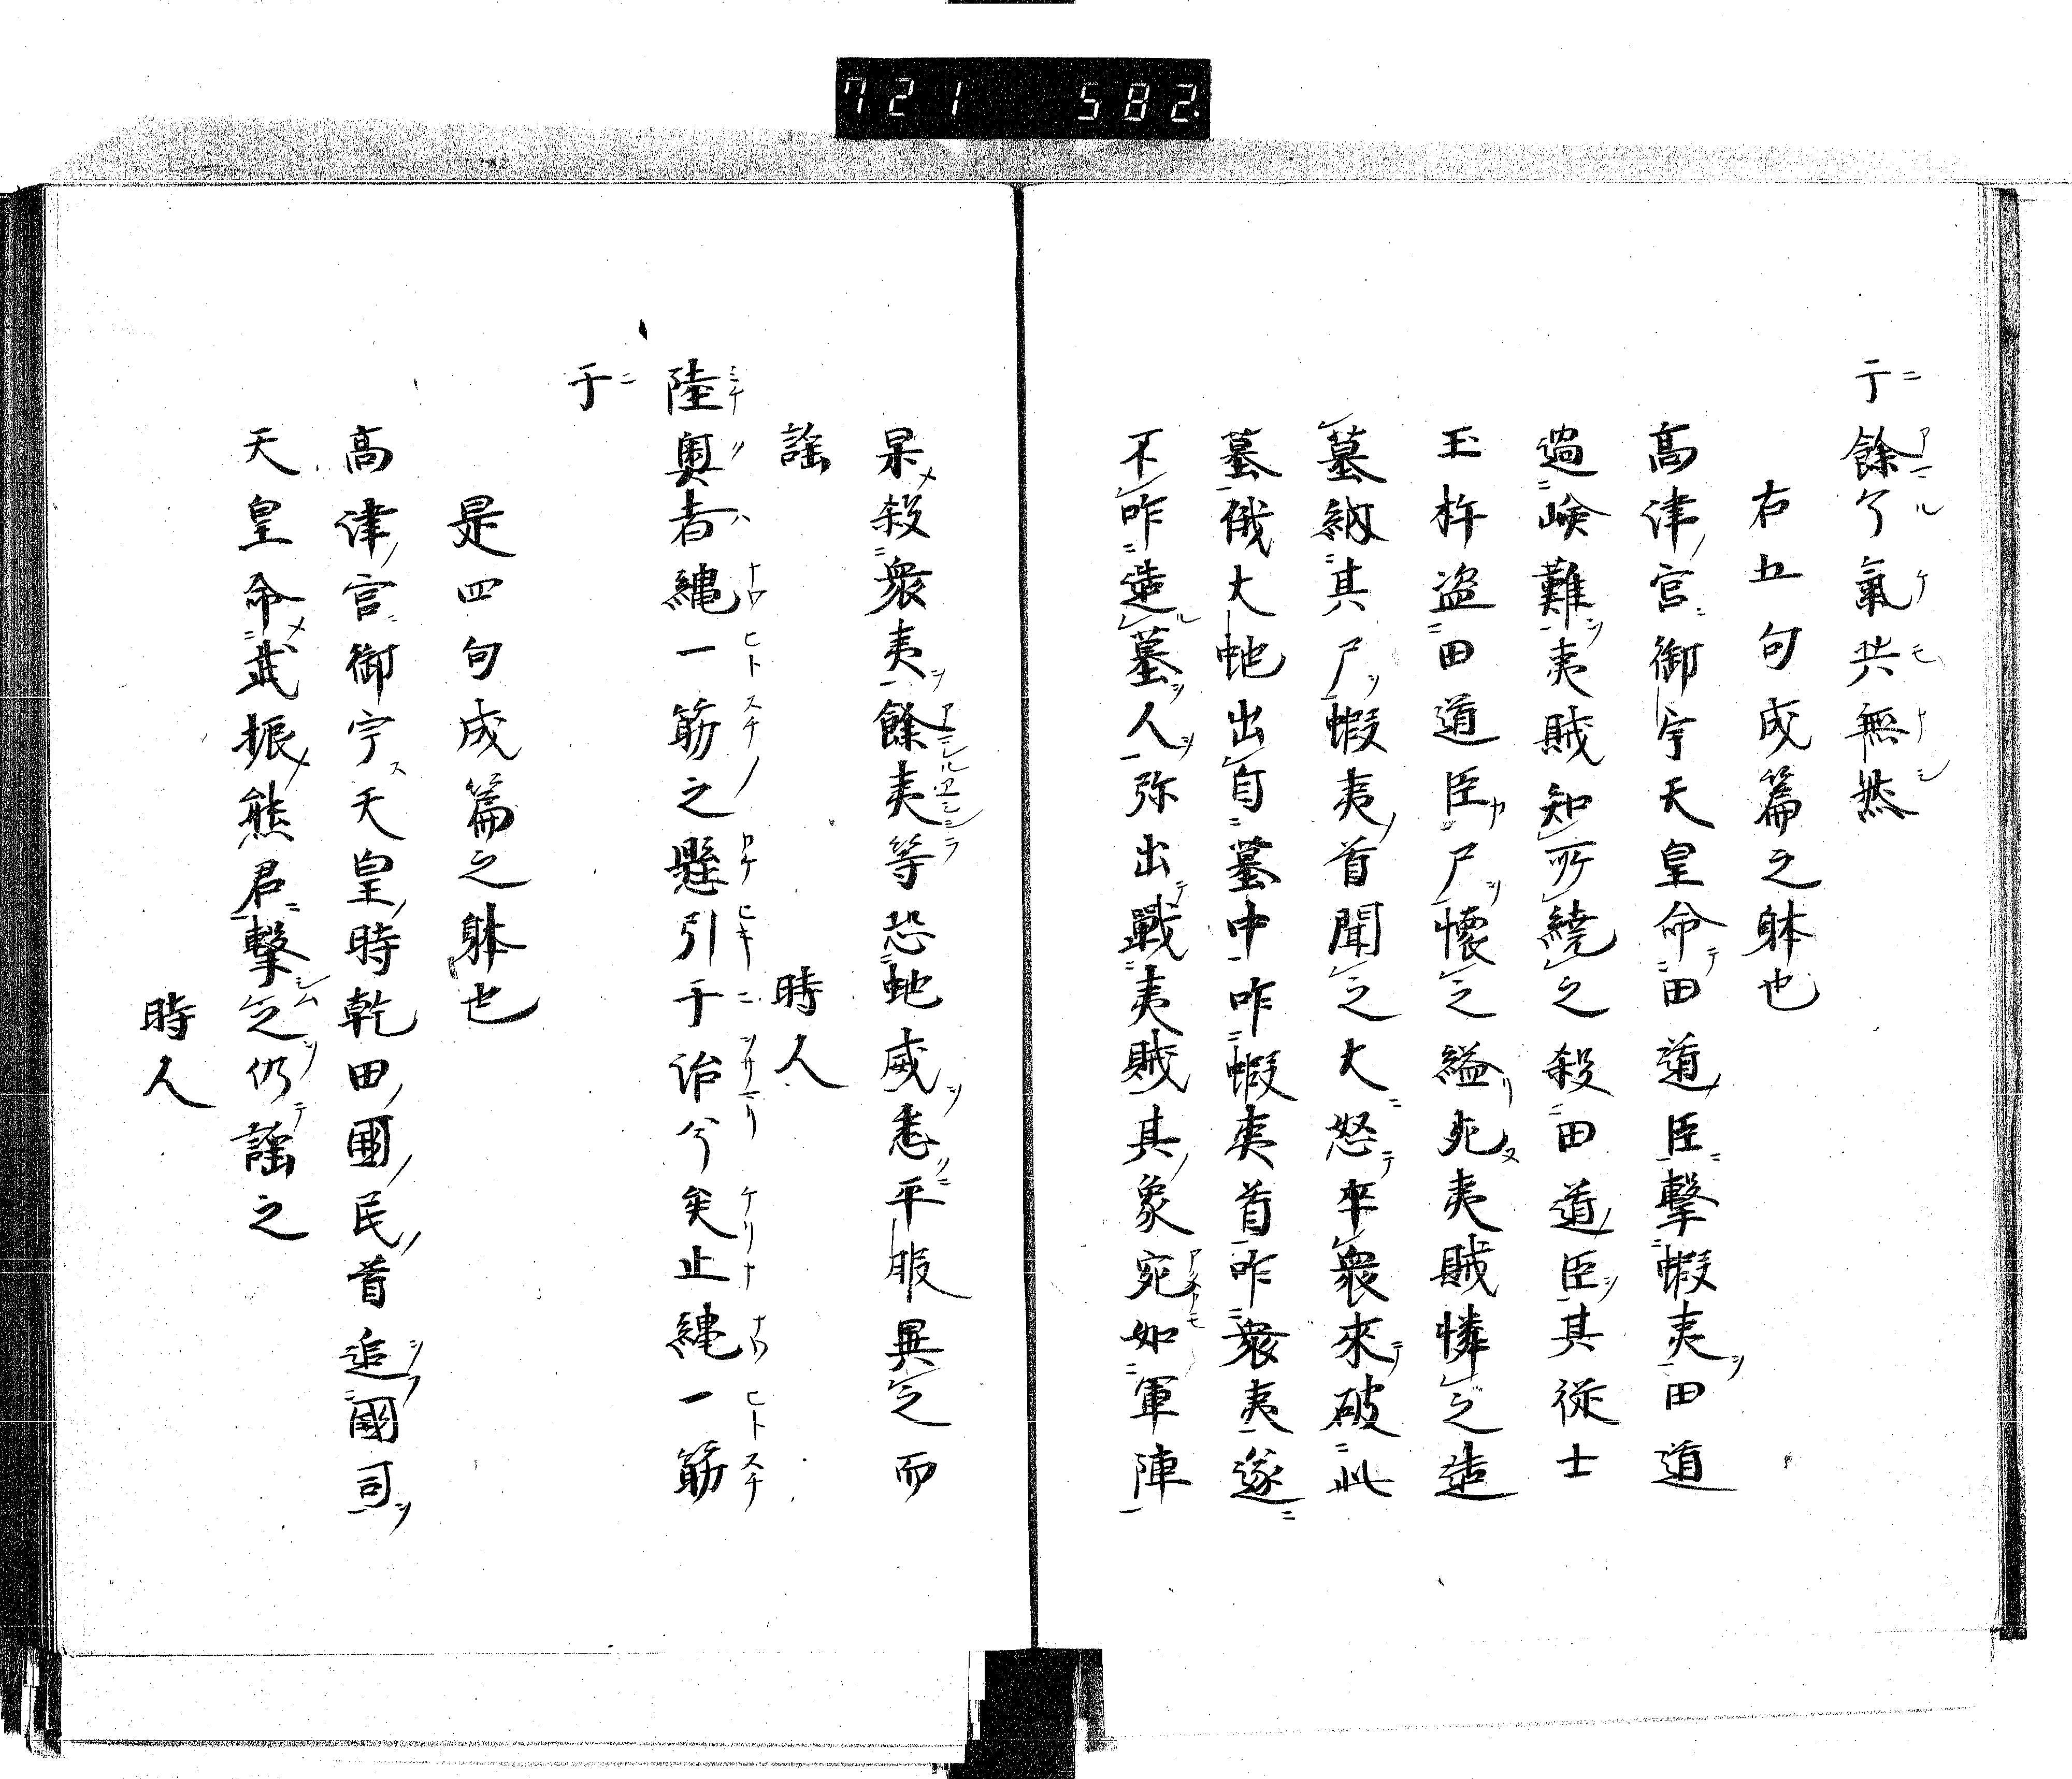 721 582.
于餘兮氣共無然
右五句成篇之躰也
高津宮御宇天皇命田道臣擊蝦夷田道
過嶮難夷賊知所繞之殺田道臣其從士
玉杵盜田道臣尸懷之縊死夷賊憐之造
墓納其尸蝦夷首聞之大怒率衆來破此
墓俄大虵出自墓中咋蝦夷首咋衆夷遂
不咋造墓人弥出戰夷賊其象宛如軍陣
杲殺衆夷餘夷等恐虵威悉平服異之而
謡 時人
陸奥者縄一筋之懸引于治兮矣止縄一筋
于
是四句成篇之躰也
高津宮御宇天皇時乾田國民首追國司
天皇命武振熊君擊之仍謡之
時人